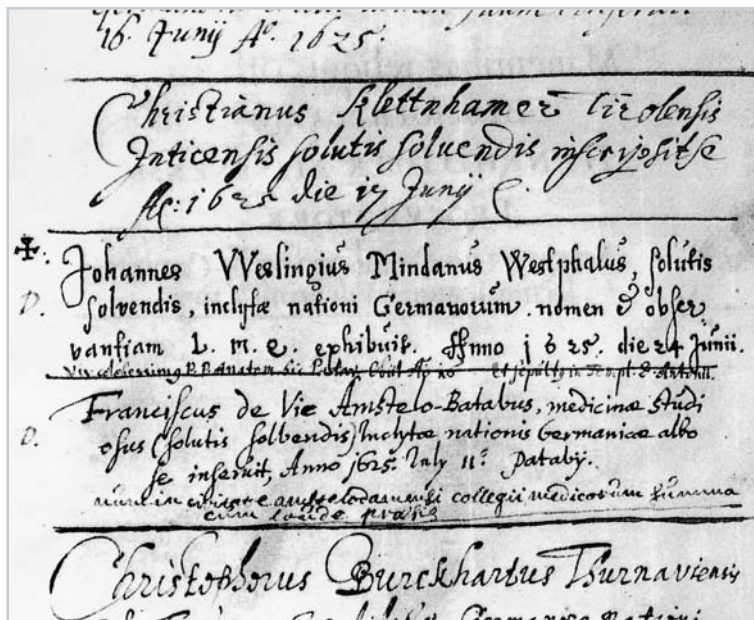 16. Junij Aº. 1625.
Christianus Klettnhamer Tirolensis
Inticensis solutis soluendis inscripsit se
Aº: 1625 die 17 Junij
Johannes VVeslingius Mindanus Westphalus, solutis
D. solvendis, inclytæ nationi Germanorum nomen & obser
vantiam L. m. q. exhibuit. Anno 1625. die 24 Junii.
Vir celeberrimus Anatom.
Franciscus de Vie Amstelo-Batabus, medicinæ Studi
D. osus (solutis solbendis) Inclytæ nationis Germanicæ albo
se inseruit, Anno 1625. July 11ª Pataby.
nunc in civitate amstelodamensi collegii medicorum summa
cum laude præses
Christophorus Burckhartus Thurnaviensis
Germanicæ Nationi